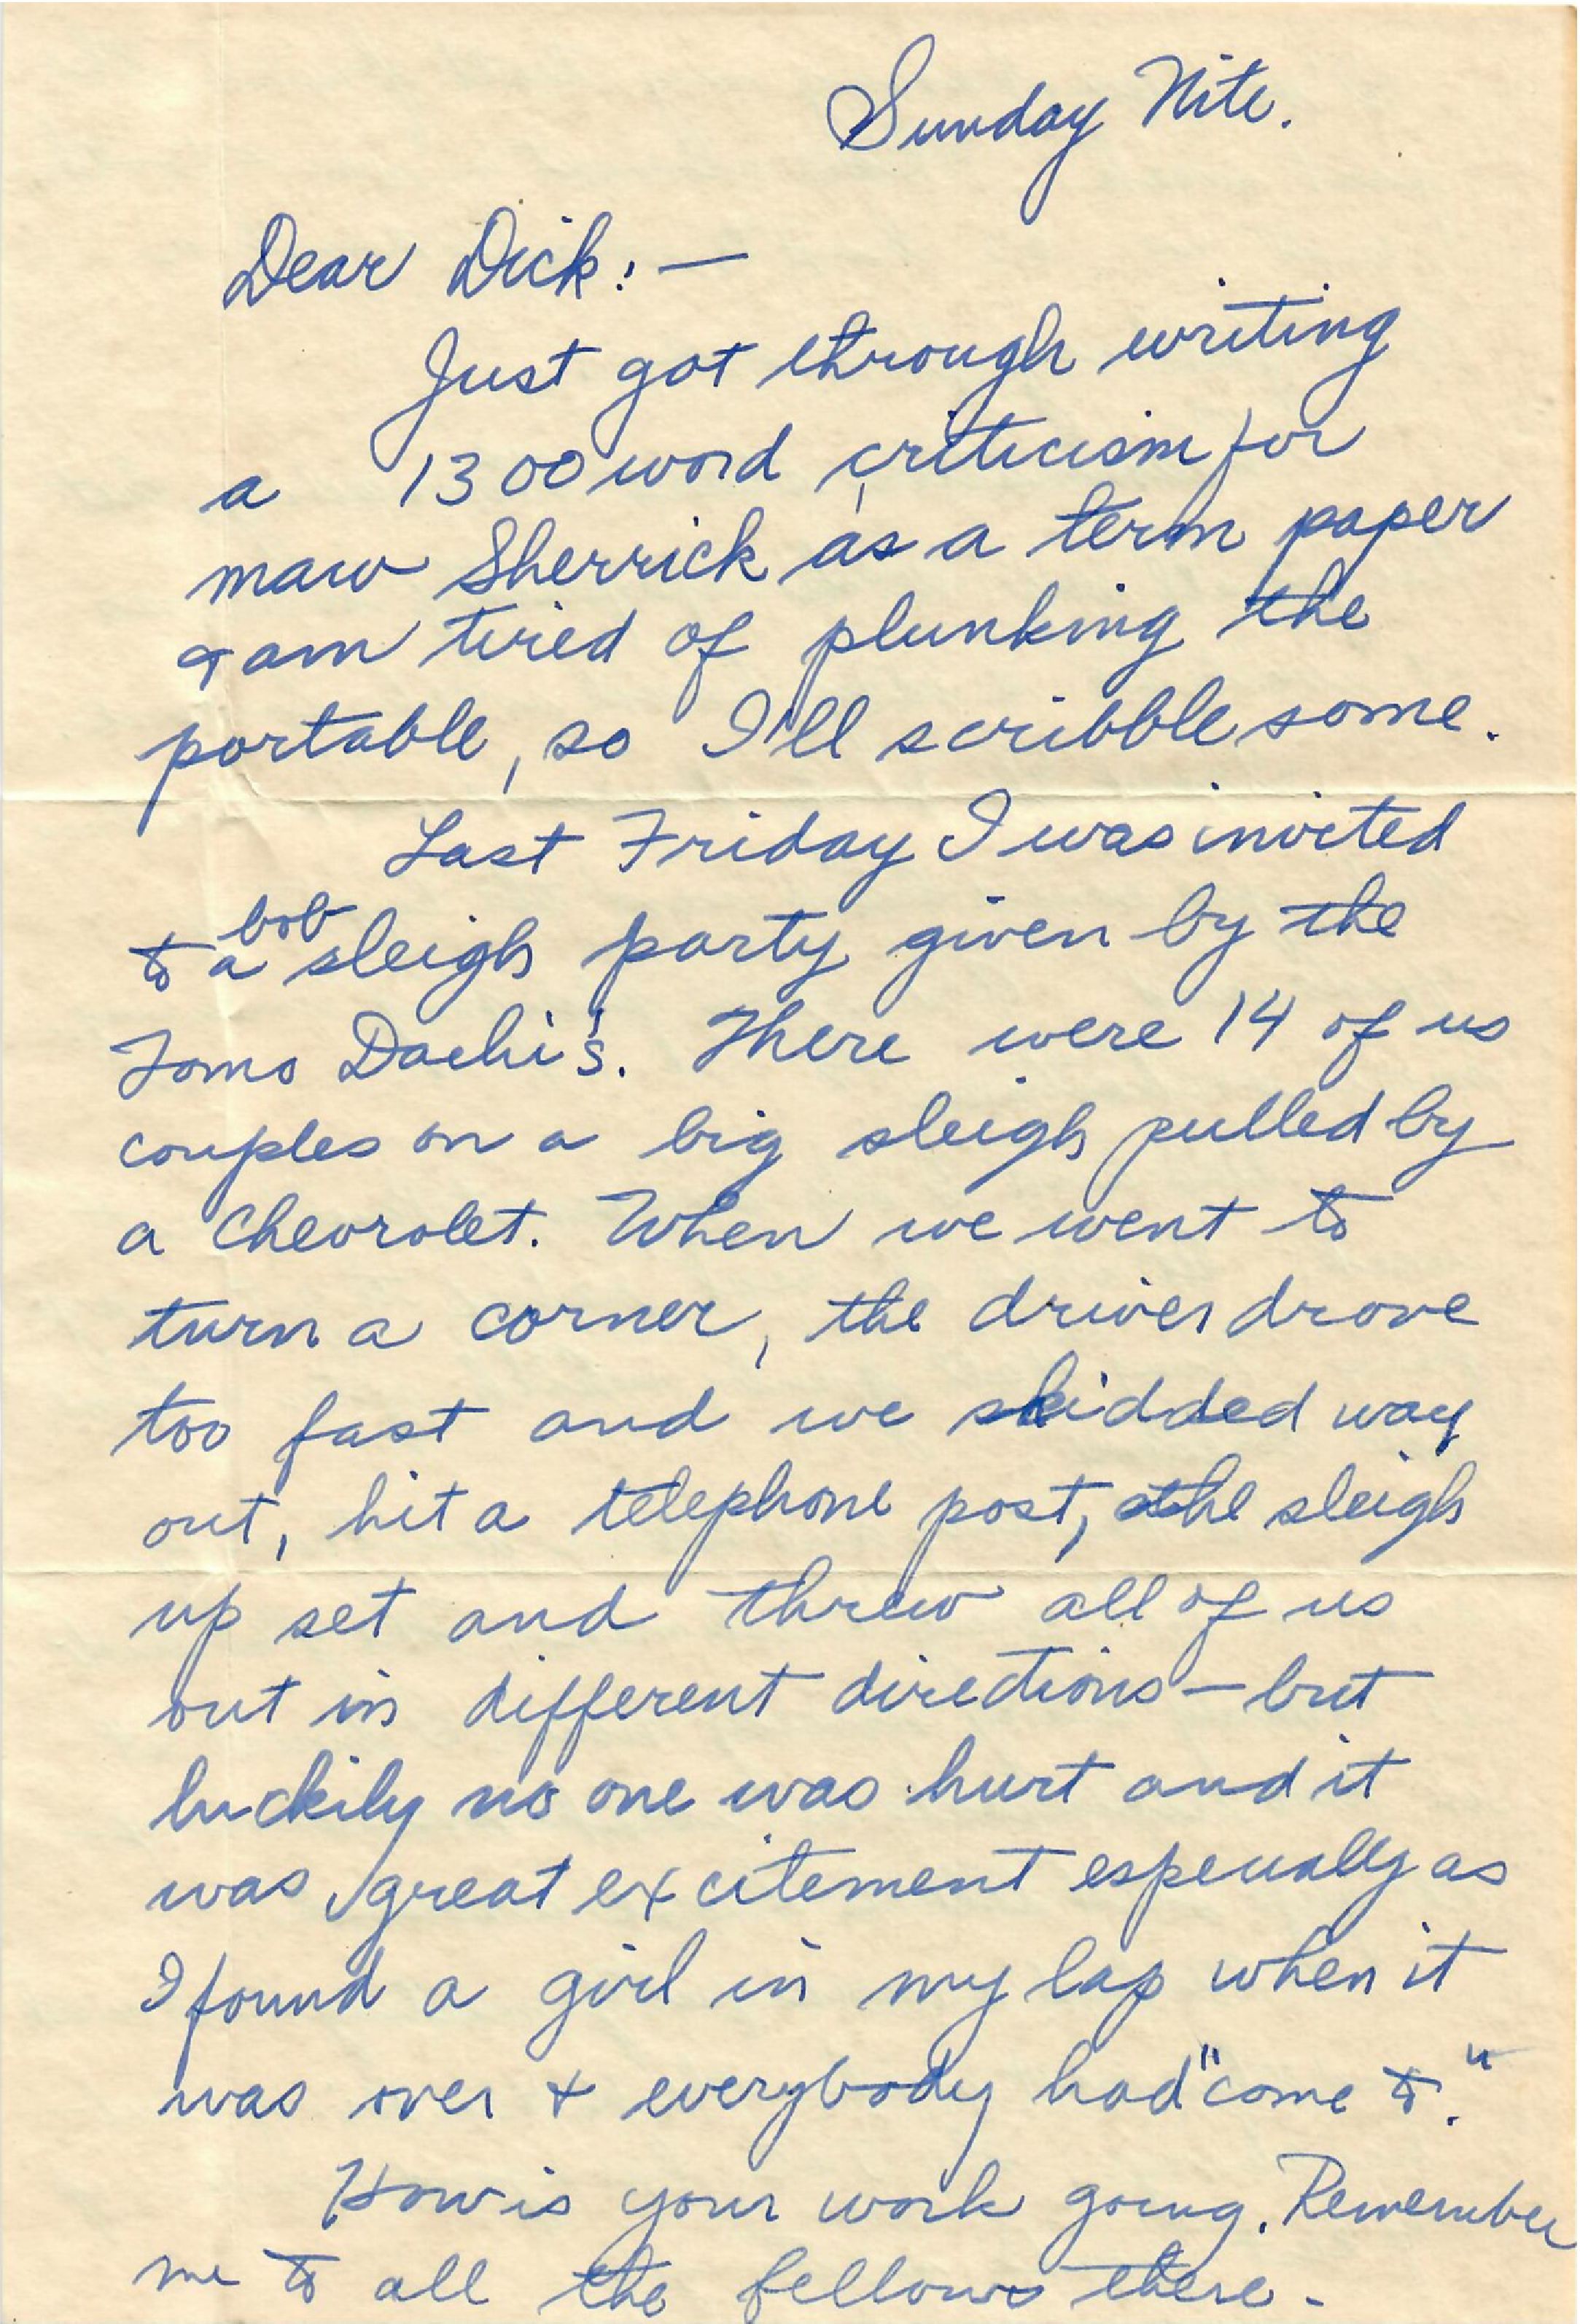 Sunday Nite.
Dear Dick: —
Just got through writing
a 1300 word criticism for
maw Sherrick as a term paper
& am tired of plunking the
portable, so I'll scribble some.
Last Friday I was invited
bob
to a sleigh party given by the
Tomo Dachi's. There were 14 of us
couples on a big sleigh pulled by
a Chevrolet. When we went to
turn a corner, the driver drove
too fast and we skidded way
out, hit a telephone post, the sleigh
up set and threw all of us
out in different directions — but
luckily no one was hurt and it
was great excitement especially as
I found a girl in my lap when it
was over & everybody had "come to."
How is your work going. Remember
me to all the fellows there.